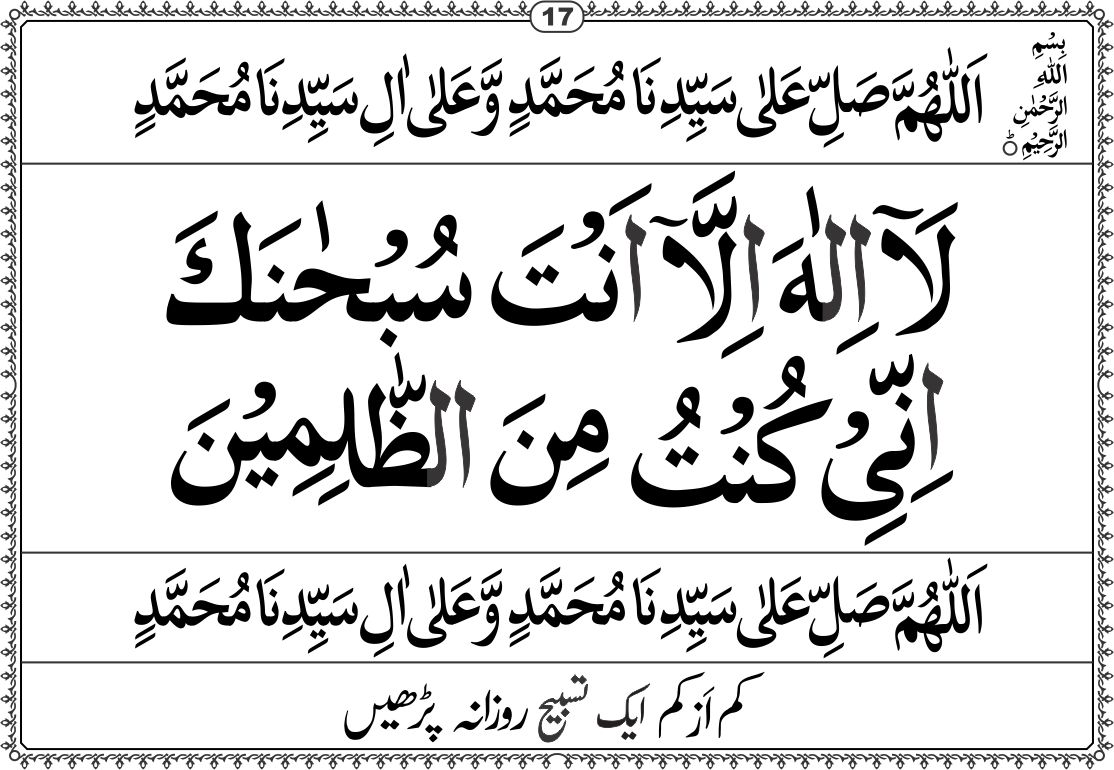 17
بِسْمِ
اللّٰهِ
الرَّحْمٰنِ
الرَّحِيْمِ ؕ
اَللّٰهُمَّ صَلِّ عَلٰى سَيِّدِنَا مُحَمَّدٍ وَّعَلٰى اٰلِ سَيِّدِنَا مُحَمَّدٍ
لَآ اِلٰهَ اِلَّآ اَنْتَ سُبْحٰنَكَ
اِنِّيْ كُنْتُ مِنَ الظّٰلِمِيْنَ
اَللّٰهُمَّ صَلِّ عَلٰى سَيِّدِنَا مُحَمَّدٍ وَّعَلٰى اٰلِ سَيِّدِنَا مُحَمَّدٍ
کم اَز کم ایک تسبیح روزانہ پڑھیں